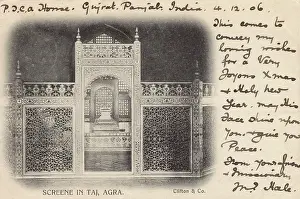 P.I.C.A Home. Gujrat. Panjab. India. 4.12.06.
This comes to
convey my
loving wishes
for a Very
Joyous Xmas
& Holy New
Year. May His
Face shine upon
You, & give you
Peace.
From your friend
& Missionary
M. J. Hale.
SCREENE IN TAJ, AGRA.
Clifton & Co.